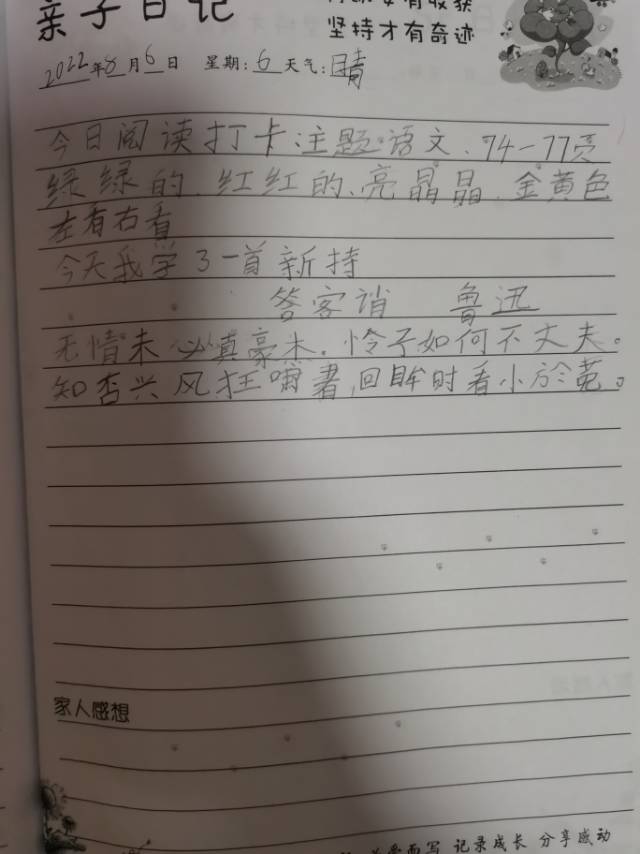 亲子日记
坚持才有奇迹
2022年8月6日 星期:6 天气:晴
今日阅读打卡:主题:语文、74-77页
绿绿的、红红的、亮晶晶、金黄色
左看右看
今天我学3一首新持
答客诮 鲁迅
无情未必真豪杰。怜子如何不丈夫。
知否兴风狂啸者,回眸时看小於菟。
家人感想
记录成长 分享感动